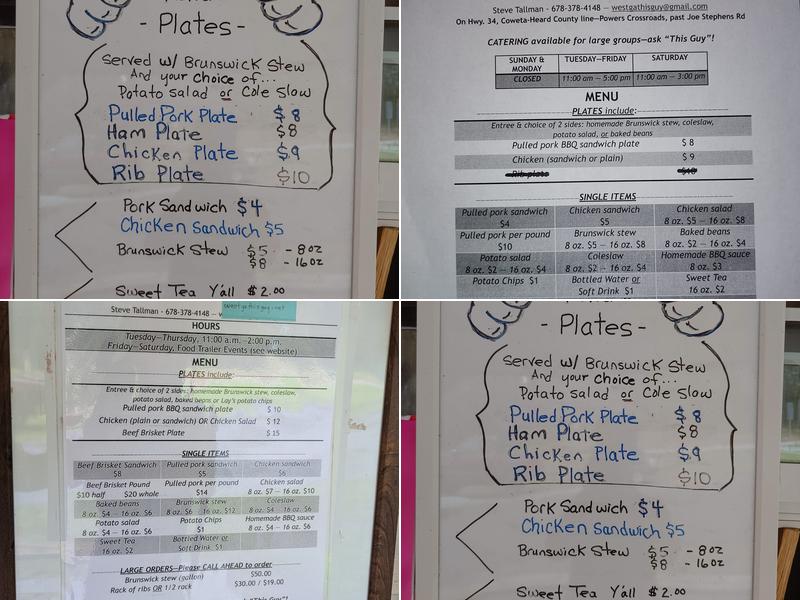 - Plates -
Served w/ Brunswick Stew
And your choice of...
Potato salad or Cole Slow
Pulled Pork Plate $8
Ham Plate $8
Chicken Plate $9
Rib Plate $10
Pork Sandwich $4
Chicken Sandwich $5
Brunswick Stew $5 - 8oz
$8 - 16oz
Sweet Tea Y'all $2.00
Steve Tallman - 678-378-4148 — westgathisguy@gmail.com
On Hwy. 34, Coweta-Heard County line—Powers Crossroads, past Joe Stephens Rd
CATERING available for large groups—ask "This Guy"!
SUNDAY & MONDAY TUESDAY—FRIDAY SATURDAY
CLOSED 11:00 am — 5:00 pm 11:00 am — 3:00 pm
MENU
PLATES include:
Entree & choice of 2 sides: homemade Brunswick stew, coleslaw,
potato salad, or baked beans
Pulled pork BBQ sandwich plate $ 8
Chicken (sandwich or plain) $ 9
Rib plate
SINGLE ITEMS
Pulled pork sandwich Chicken sandwich Chicken salad
$4 $5 8 oz. $5 — 16 oz. $8
Pulled pork per pound Brunswick stew Baked beans
$10 8 oz. $5 — 16 oz. $8 8 oz. $2 — 16 oz. $4
Potato salad Coleslaw Homemade BBQ sauce
8 oz. $2 — 16 oz. $4 8 oz. $2 — 16 oz. $4 8 oz. $3
Potato Chips $1 Bottled Water or Sweet Tea
Soft Drink $1 16 oz. $2
Steve Tallman - 678-378-4148 — w
HOURS
Tuesday—Thursday, 11:00 a.m.—2:00 p.m.
Friday—Saturday, Food Trailer Events (see website)
MENU
PLATES include:
Entree & choice of 2 sides: homemade Brunswick stew, coleslaw,
potato salad, baked beans or Lay's potato chips
Pulled pork BBQ sandwich plate $ 10
Chicken (plain or sandwich) OR Chicken Salad $ 12
Beef Brisket Plate $ 15
SINGLE ITEMS
Beef Brisket Sandwich Pulled pork sandwich Chicken sandwich
$8 $5 $6
Beef Brisket Pound Pulled pork per pound Chicken salad
$10 half $20 whole $14 8 oz. $7 — 16 oz. $10
Baked beans Brunswick stew Coleslaw
8 oz. $4 — 16 oz. $6 8 oz. $6 — 16 oz. $12 8 oz. $4 — 16 oz. $6
Potato salad Potato Chips Homemade BBQ sauce
8 oz. $4 — 16 oz. $6 $1 8 oz. $4 — 16 oz. $6
Sweet Tea Bottled Water or
16 oz. $2 Soft Drink $1
LARGE ORDERS—Please CALL AHEAD to order
Brunswick stew (gallon) $50.00
Rack of ribs OR 1/2 rack $30.00 / $19.00
"This Guy"!
- Plates -
Served w/ Brunswick Stew
And your choice of...
Potato salad or Cole Slow
Pulled Pork Plate $8
Ham Plate $8
Chicken Plate $9
Rib Plate $10
Pork Sandwich $4
Chicken Sandwich $5
Brunswick Stew $5 - 8oz
$8 - 16oz
Sweet Tea Y'all $2.00